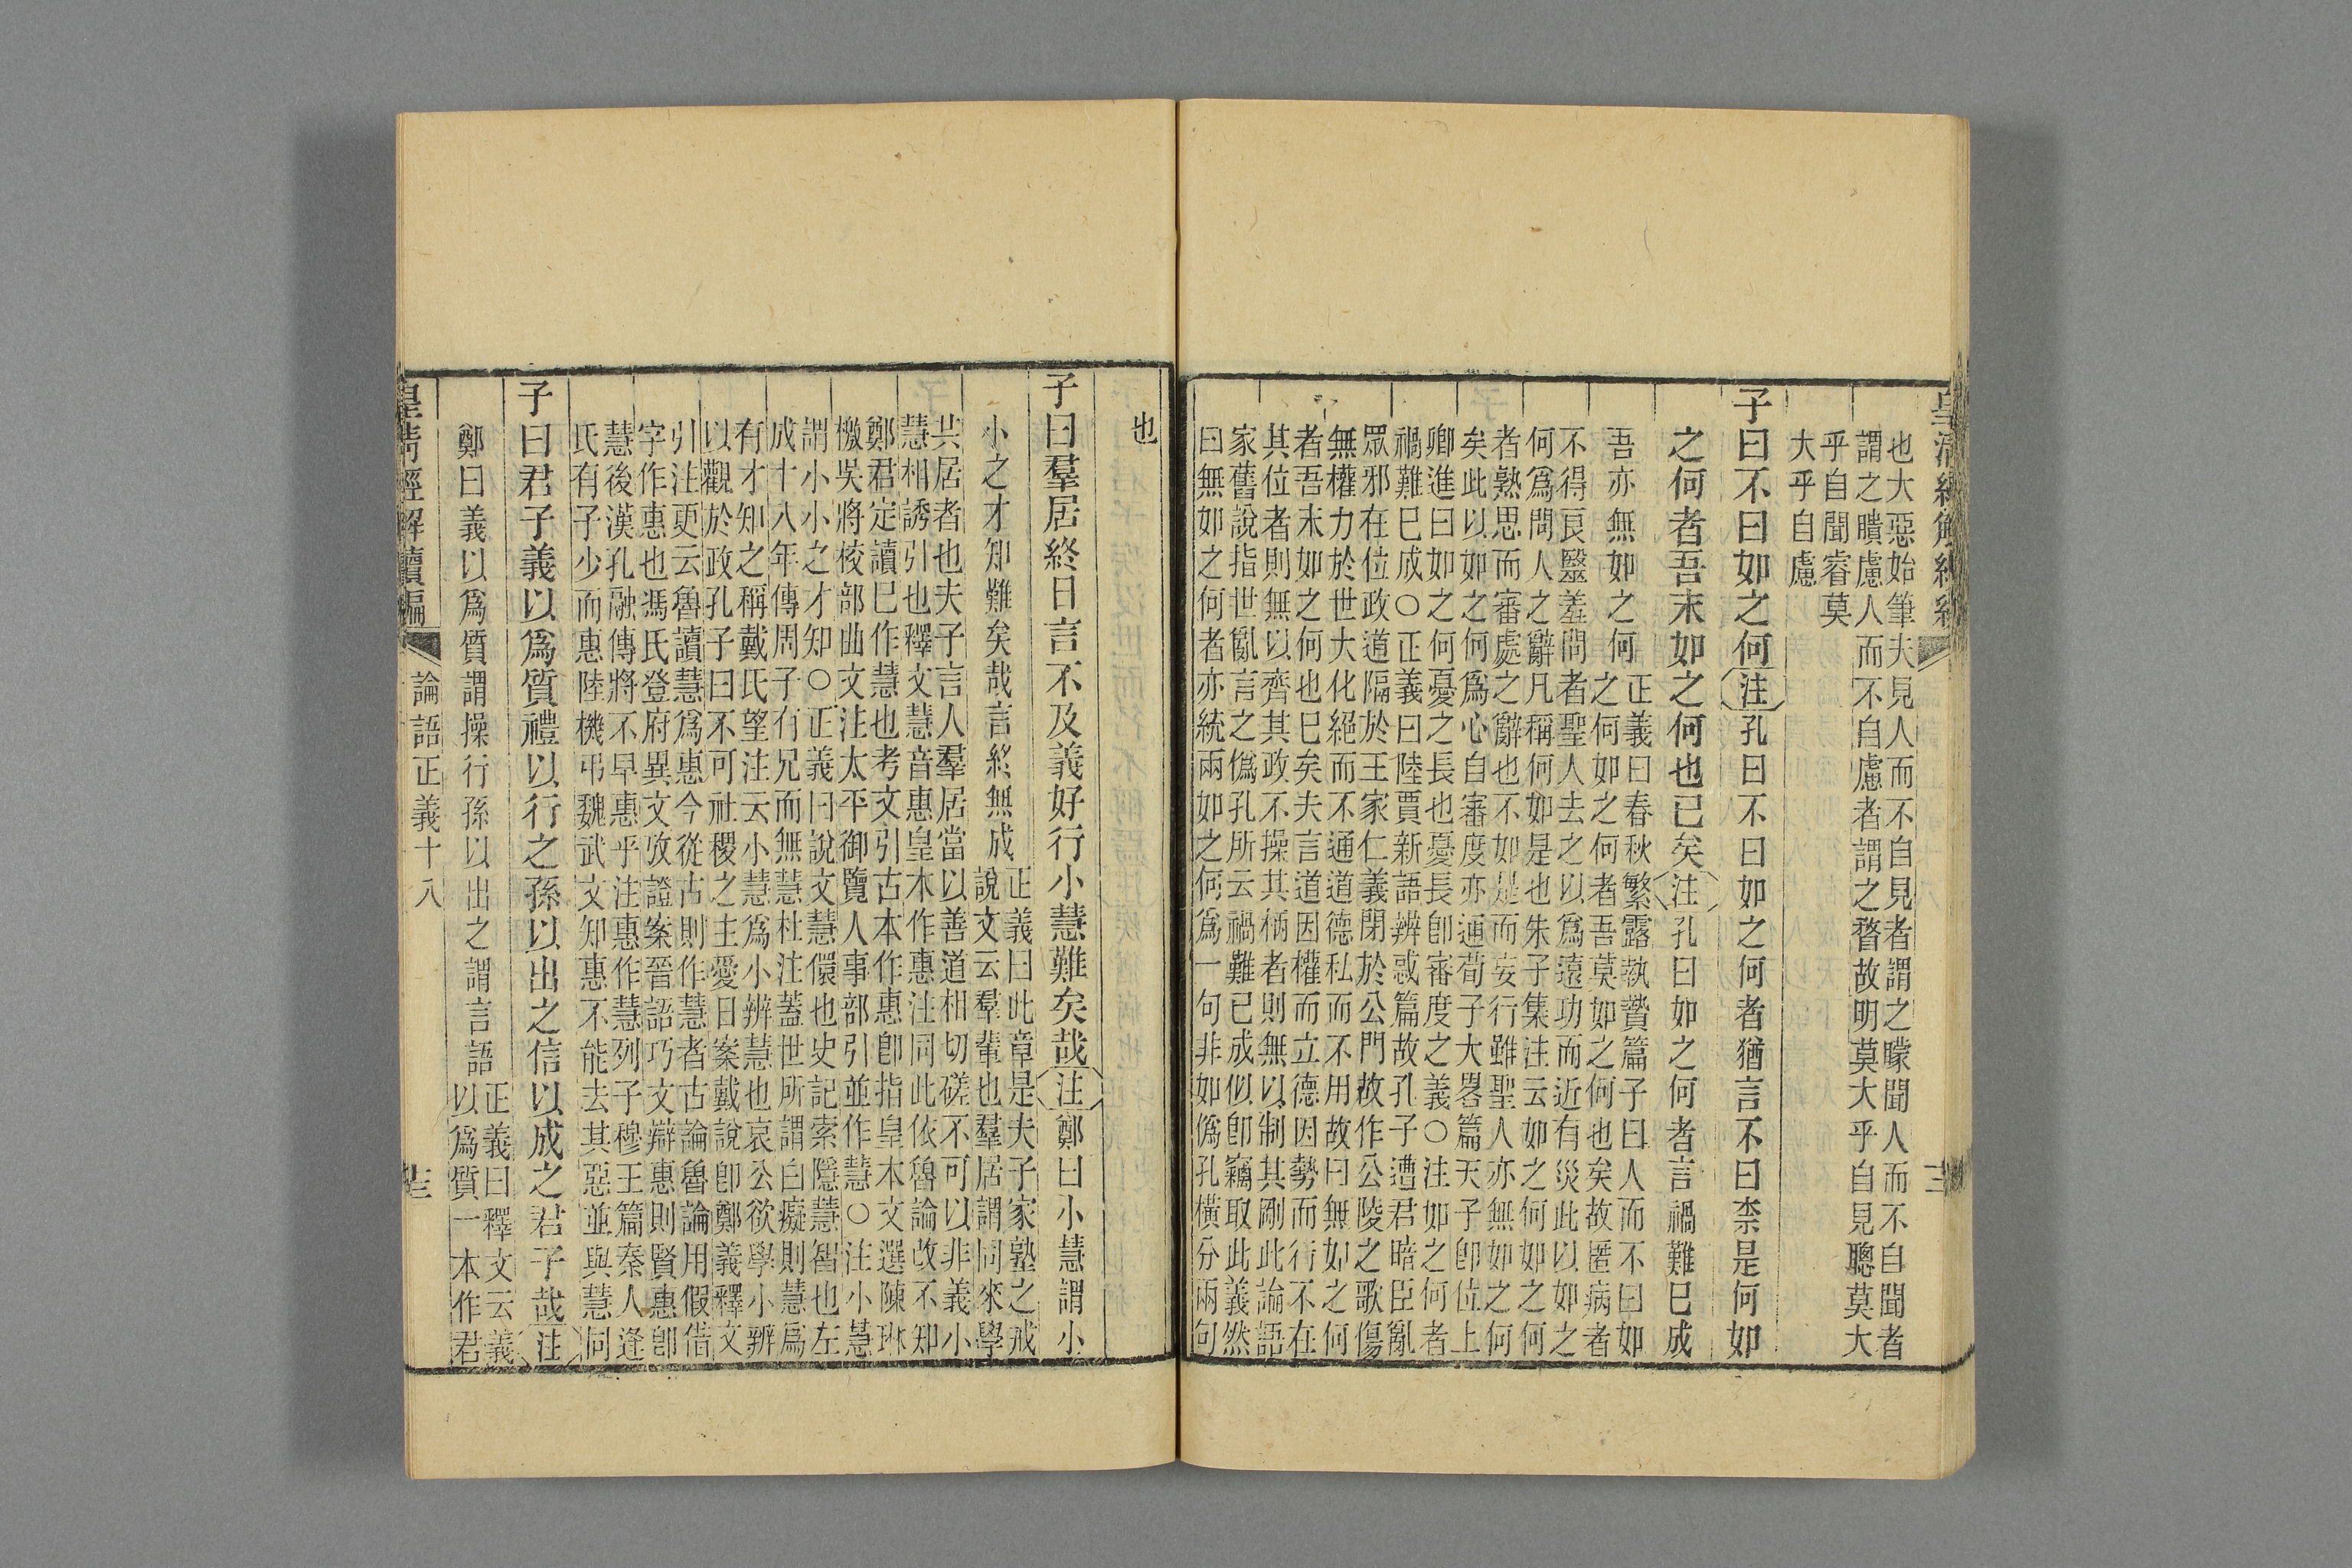 皇清經解續編
也大惡始筆夫見人而不自見者謂之矇聞人而不自聞者
謂之聵慮人而不自慮者謂之瞀故明莫大乎自見聰莫大
乎自聞睿莫
大乎自慮
子曰不曰如之何注孔曰不曰如之何者猶言不曰柰是何如
之何者吾末如之何也已矣注孔曰如之何者言禍難已成
吾亦無如之何
正義曰春秋繁露執贄篇子曰人而不曰如
之何如之何者吾莫如之何也矣故匿病者
不得良醫羞問者聖人去之以爲遠功而近有災此以如之
何爲問人之辭凡稱何如是也朱子集注云如之何如之何
者熟思而審處之辭也不如是而妄行雖聖人亦無如之何
矣此以如之何爲心自審度亦通荀子大畧篇天子卽位上
卿進曰如之何憂之長也憂長卽審度之義○注如之何者
禍難已成○正義曰陸賈新語辨惑篇故孔子遭君暗臣亂
眾邪在位政道隔於王家仁義閉於公門故作公陵之歌傷
無權力於世大化絕而不通道德私而不用故曰無如之何
者吾末如之何也已矣夫言道因權而立德因勢而行不在
其位者則無以齊其政不操其柄者則無以制其剛此論語
家舊說指世亂言之僞孔所云禍難已成似卽竊取此義然
曰無如之何者亦統兩如之何爲一句非如僞孔橫分兩句
也
子曰羣居終日言不及義好行小慧難矣哉注鄭曰小慧謂小
小之才知難矣哉言終無成
正義曰此章是夫子家塾之戒
說文云羣輩也羣居謂同來學
共居者也夫子言人羣居當以善道相切磋不可以非義小
慧相誘引也釋文慧音惠皇本作惠注同此依魯論改不知
鄭君定讀已作慧也考文引古本作惠卽指皇本文選陳琳
檄吳將校部曲文注太平御覽人事部引並作慧○注小慧
謂小小之才知○正義曰說文慧儇也史記索隱慧智也左
成十八年傳周子有兄而無慧杜注蓋世所謂白癡則慧爲
有才知之稱戴氏望注云小慧爲小辨慧也哀公欲學小辨
以觀於政孔子曰不可社稷之主愛日案戴說卽鄭義釋文
引注更云魯讀慧爲惠今從古則作慧者古論魯論用假借
字作惠也馮氏登府異文攷證案晉語巧文辯惠則賢惠卽
慧後漢孔融傳將不早惠乎注惠作慧列子穆王篇秦人逢
氏有子少而惠陸機弔魏武文知惠不能去其惡並與慧同
子曰君子義以爲質禮以行之孫以出之信以成之君子哉注
鄭曰義以爲質謂操行孫以出之謂言語
正義曰釋文云義
以爲質一本作君
皇清經解續編
論語正義十八